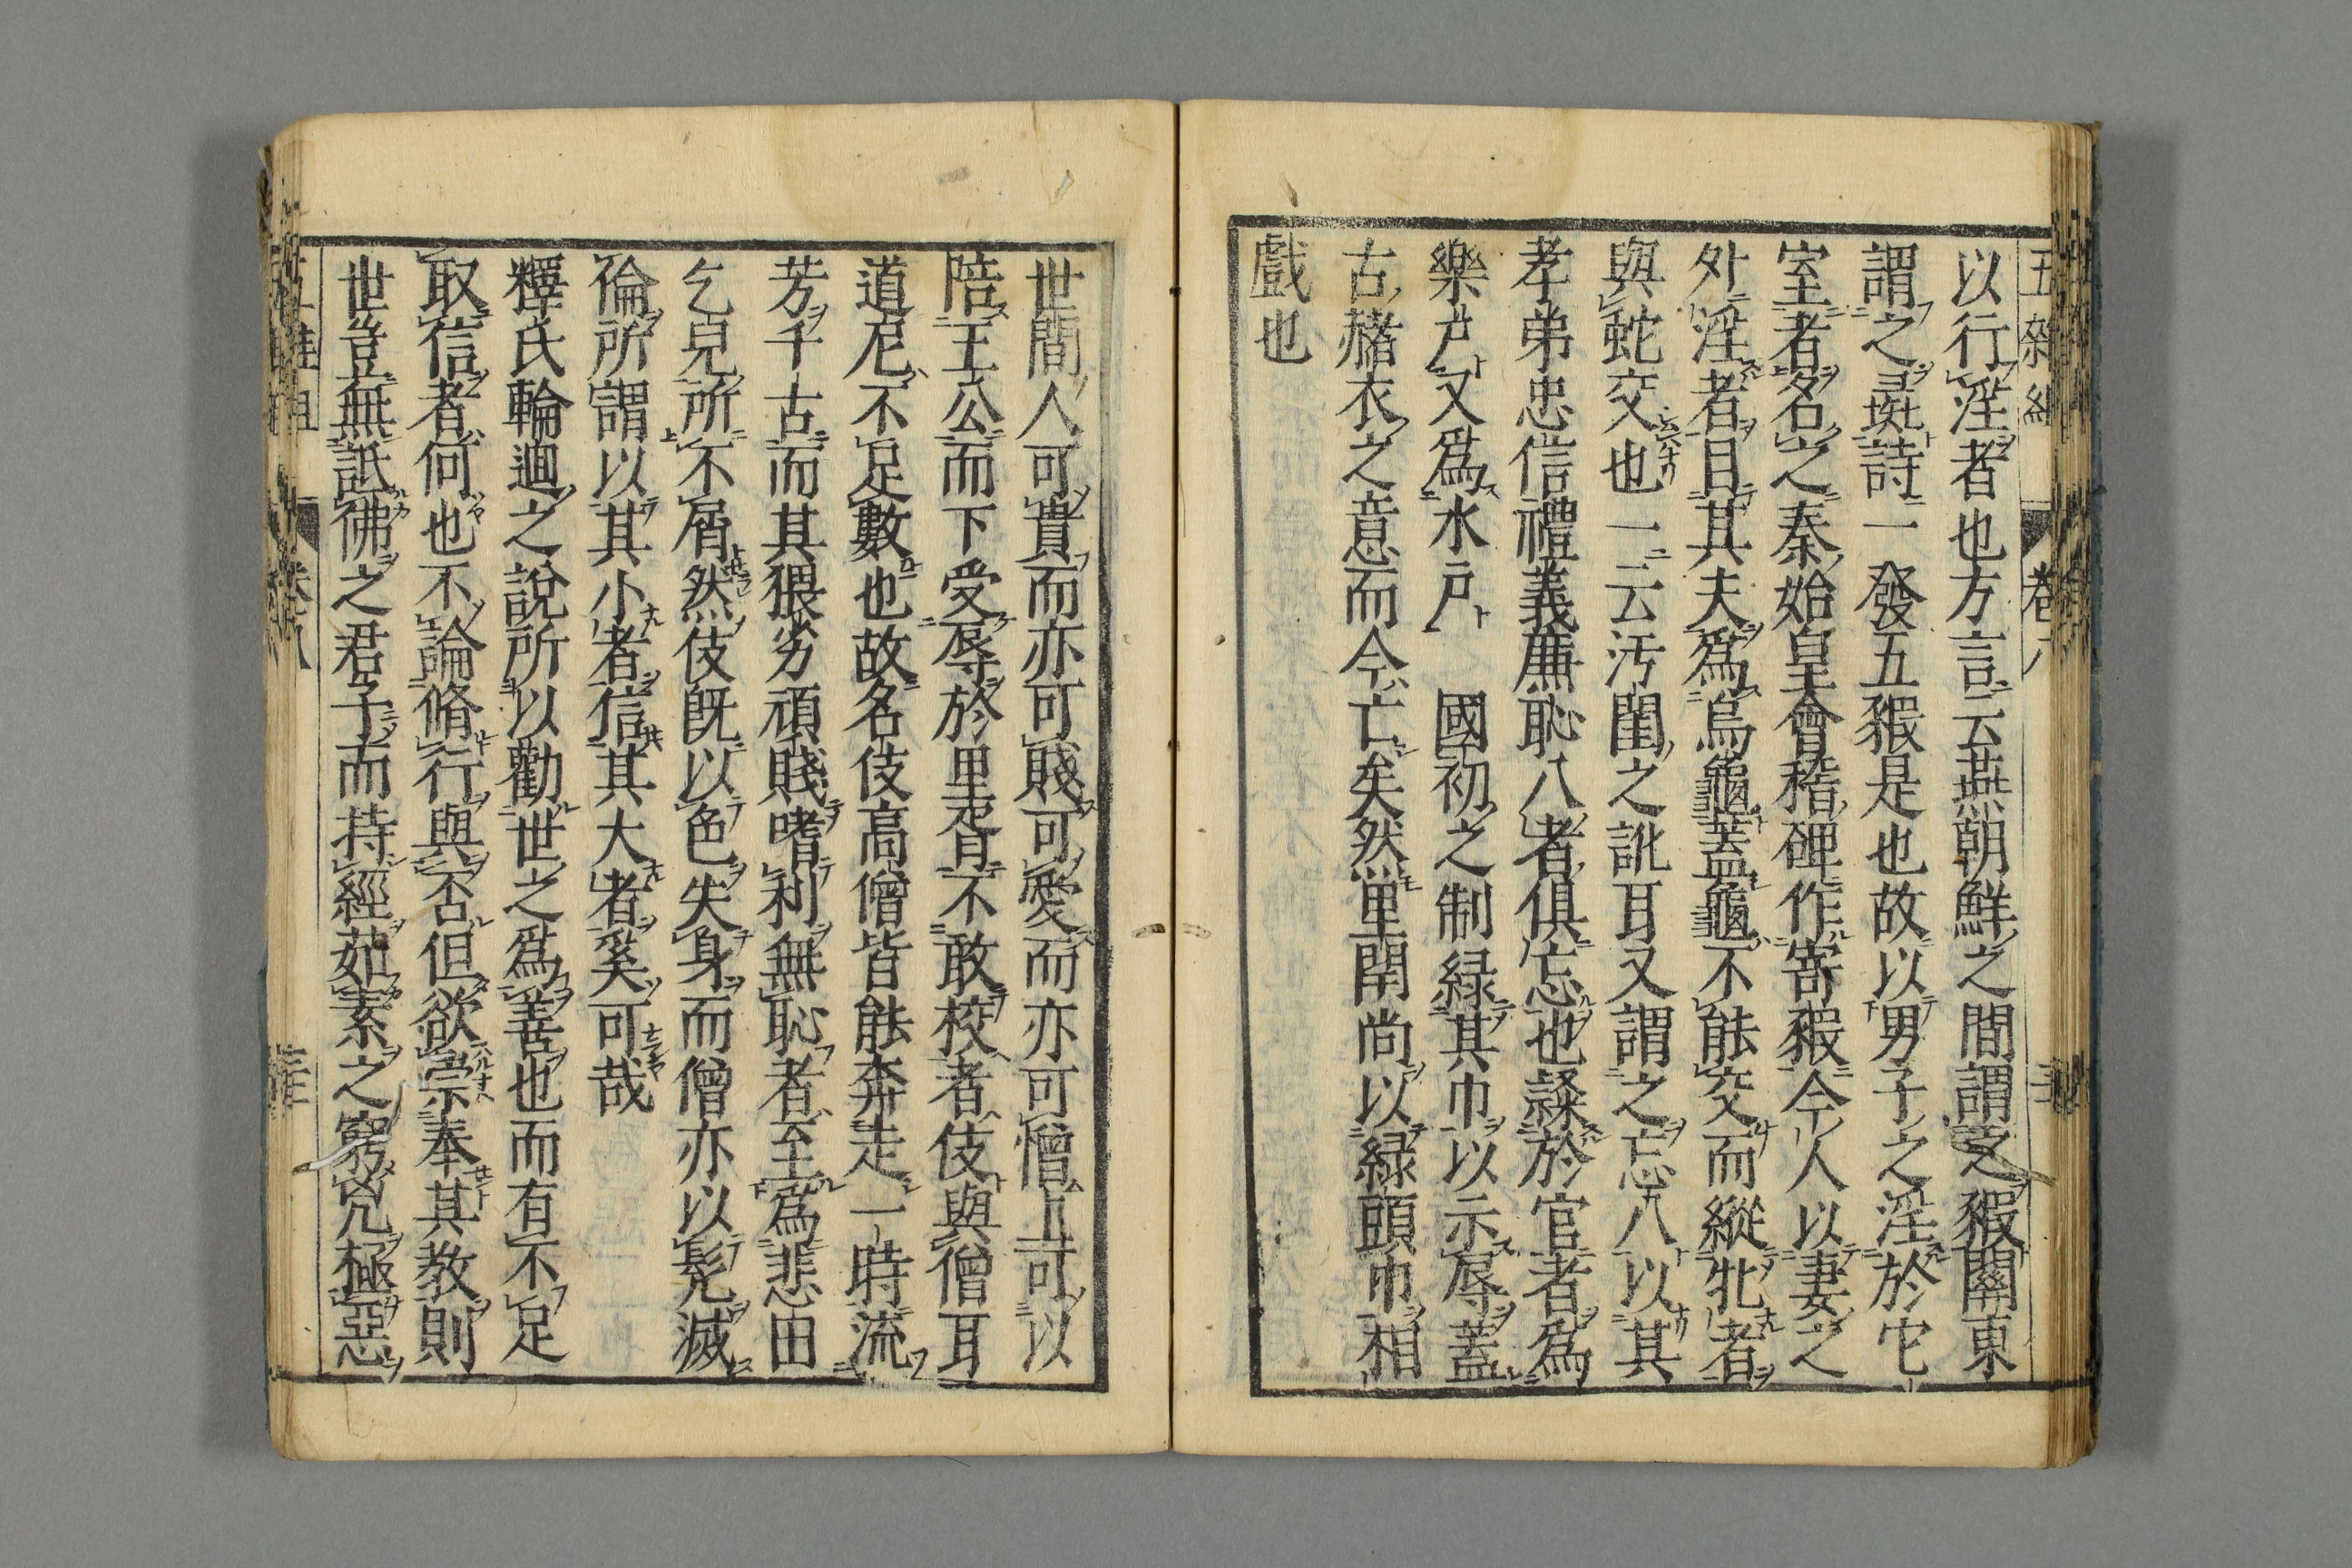 五雜組 卷八
以行淫者也方言云燕朝鮮之間謂之豭關東
謂之彘詩一發五豭是也故以男子之淫於它
室者名之秦始皇會稽碑作寄豭今人以妻之
外淫者目其夫爲烏龜蓋龜不能交而縱牝者
與蛇交也一云汚閨之訛耳又謂之忘八以其
孝弟忠信禮義廉恥八者俱忘也隸於官者爲
樂户又爲水户 國初之制緑其巾以示辱蓋
古赭衣之意而今亡矣然里閈尚以緑頭巾相
戲也
世間人可貴而亦可賤可愛而亦可憎上可以
陪王公而下受辱於里胥不敢校者伎與僧耳
道尼不足數也故名伎高僧皆能奔走一時流
芳千古而其猥劣頑賤嗜利無恥者至爲悲田
乞兒所不屑然伎既以色失身而僧亦以髡滅
倫所謂以其小者信其大者奚可哉
釋氏輪迴之說所以勸世之爲善也而有不足
取信者何也不論脩行與否但欲崇奉其教則
世豈無詆佛之君子而持經茹素之窮兇極惡